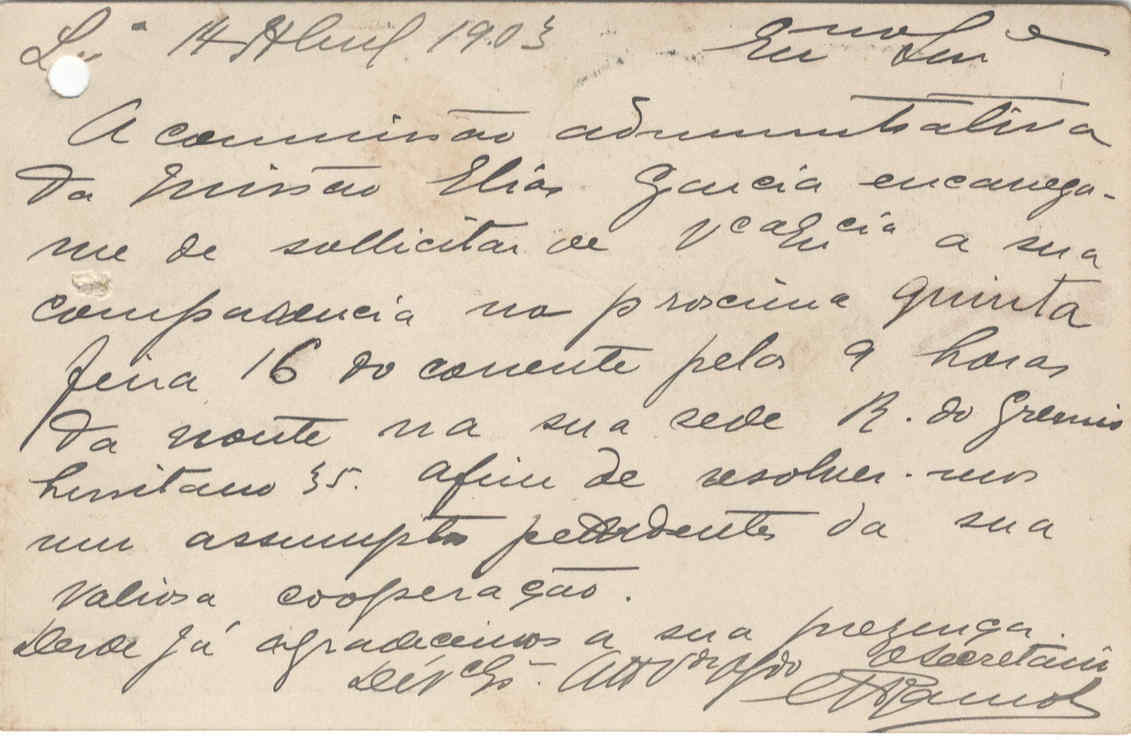 Lxª 14 Abril 1903 Exmo Snr
A commissão administrativa
da missão Elias Garcia encarrega-
me de sollicitar de V.cª Ex.cia a sua
comparencia na proxima quinta
feira 16 do corrente pelas 9 horas
da noute na sua sede R. do Gremio
Lusitano 35. afim de resolver-mos
um assumpto pendente da sua
valiosa cooperação.
Desde já agradecemos a sua presença.
O Secretario
Ramos